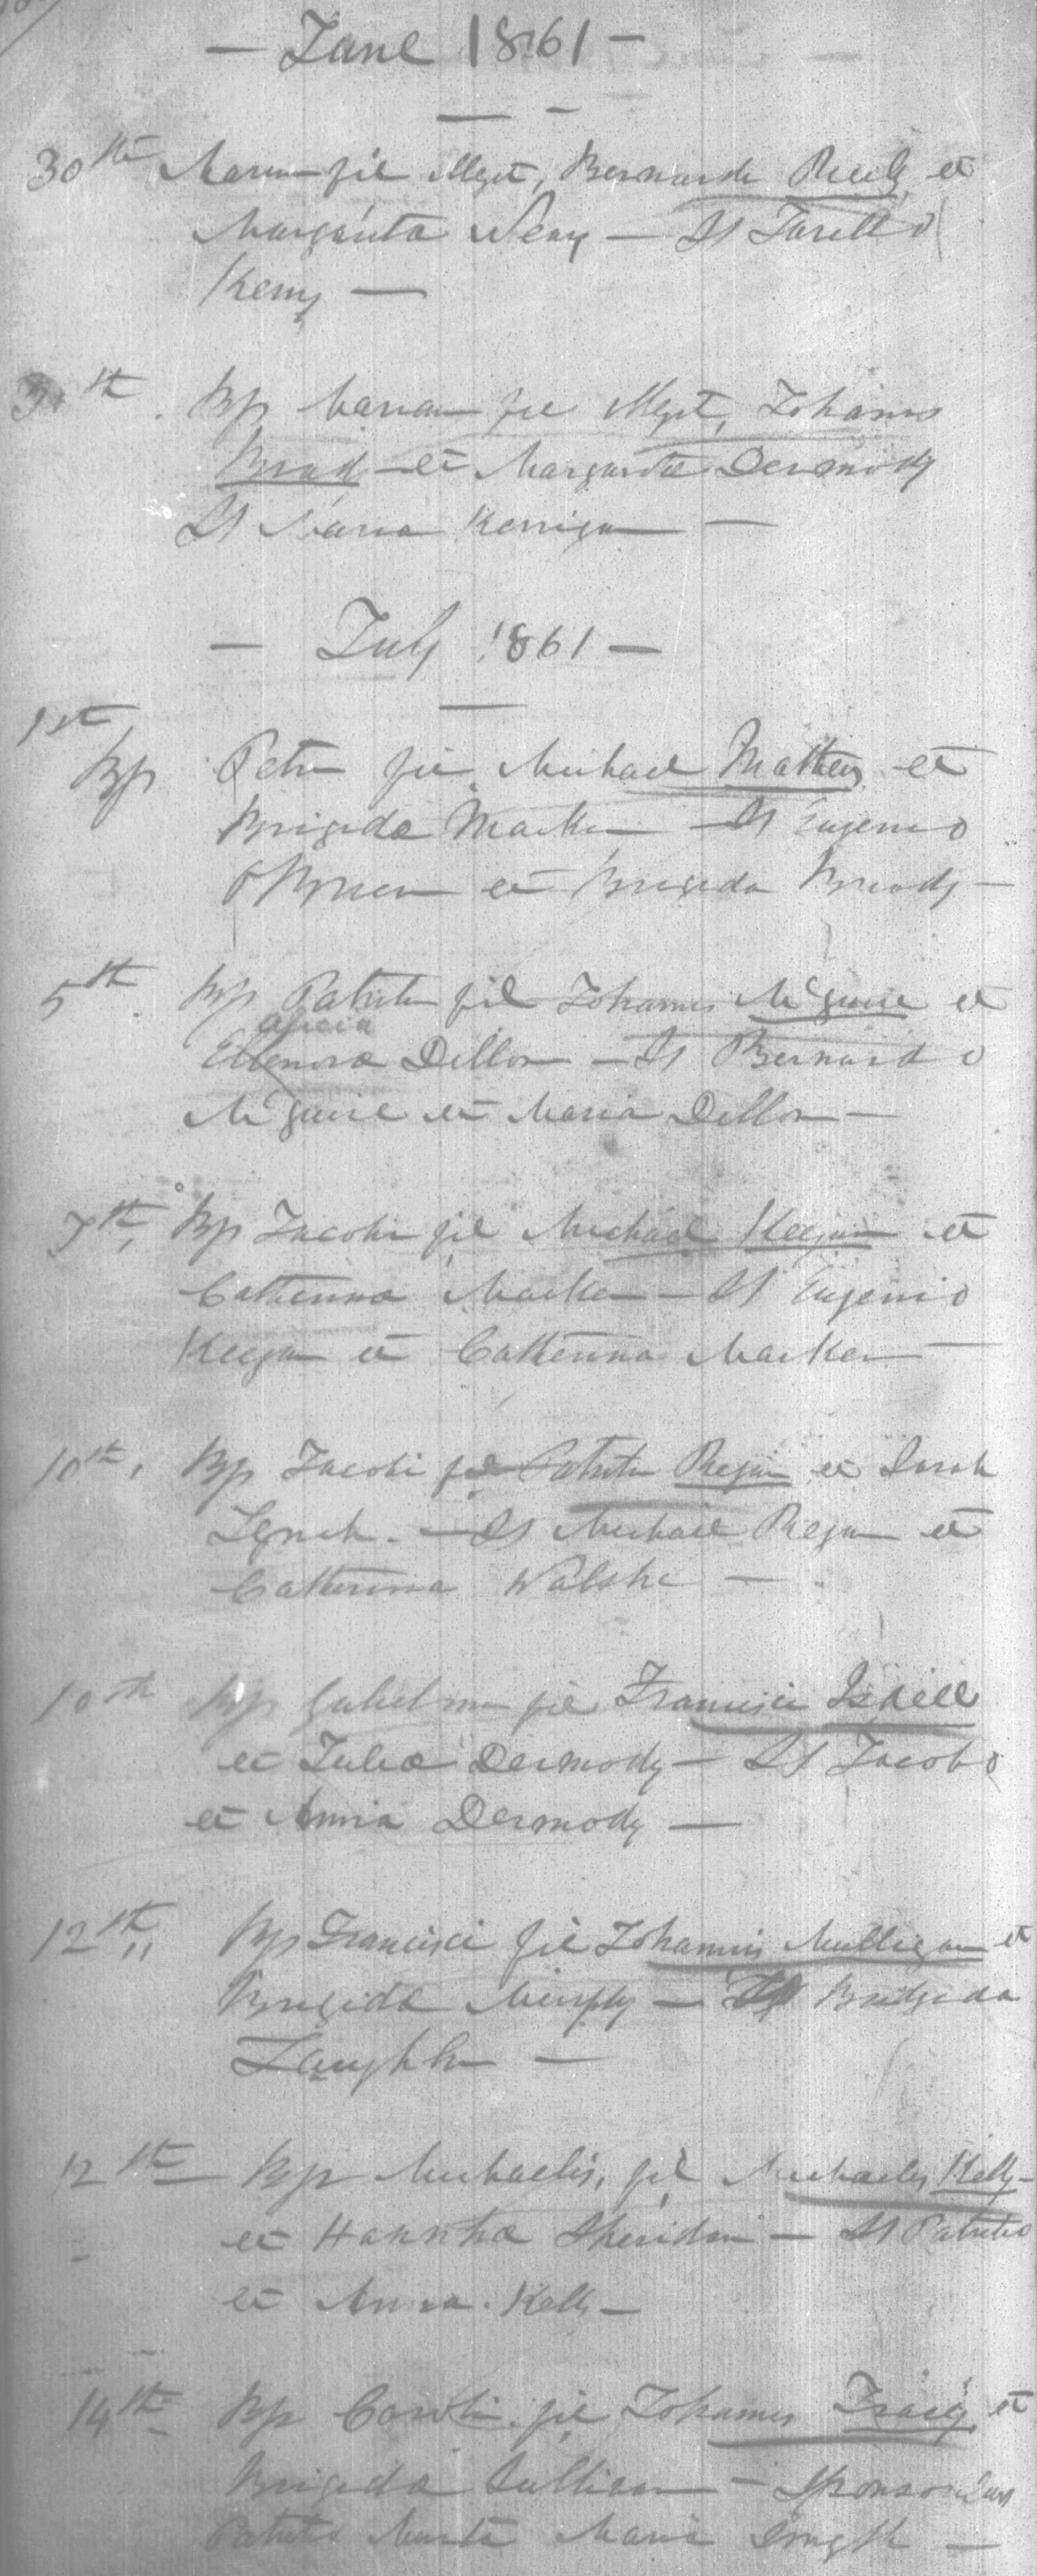 — June 1861 —
30th Mariam fil Illegt, Bernardi Reily et
Margarita — Ss
Kenny —
Bp Mariam fil Illegt, Johannis
Brady et Margaritae Dermody
Ss Maria Kerrigan —
— July 1861 —
1st
Bp Petri fil Michael Mathews et
Brigida Macken — Ss Eugenio
O'Brien et Brigida Briody —
5th Bp Patritii fil Johannis McGuire et
Alicia
Ellenora Dillon — Ss Bernardo
McGuire et Maria Dillon —
7th, Bp Jacobi fil Michael Keegan et
Catherina Macken — Ss Eugenio
Keegan et Catherina Macken —
10th, Bp Jacobi fil Patritii Regan et Sarah
Lynch. — Ss Michael Regan et
Catherina Walshe —
10th Bp Gulielmi fil Francisci Isdell
et Julia Dermody — Ss Jacobo
et Anna Dermody —
12th,, Bp Francisci fil Johannis Mulligan et
Brigida Murphy — Ss Bridgida
Laughlin —
12th Bp Michaelis, fil Michaelis Kelly
et Hannha Sheridan — Ss Patritio
et Anna. Kelly —
14th Bp fil Johannis et
Brigida Sullivan — Sponsoribus
Patritio Maria Smyth —